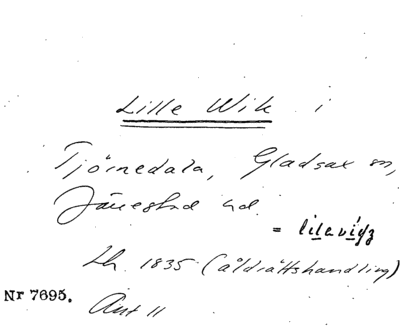 Lille Wik i
Tjörnedala, Gladsax sn,
Järrestad hd.
= lilavigz
Lh. 1835 (åldrättshandling)
Nr 7695.
Ant 11